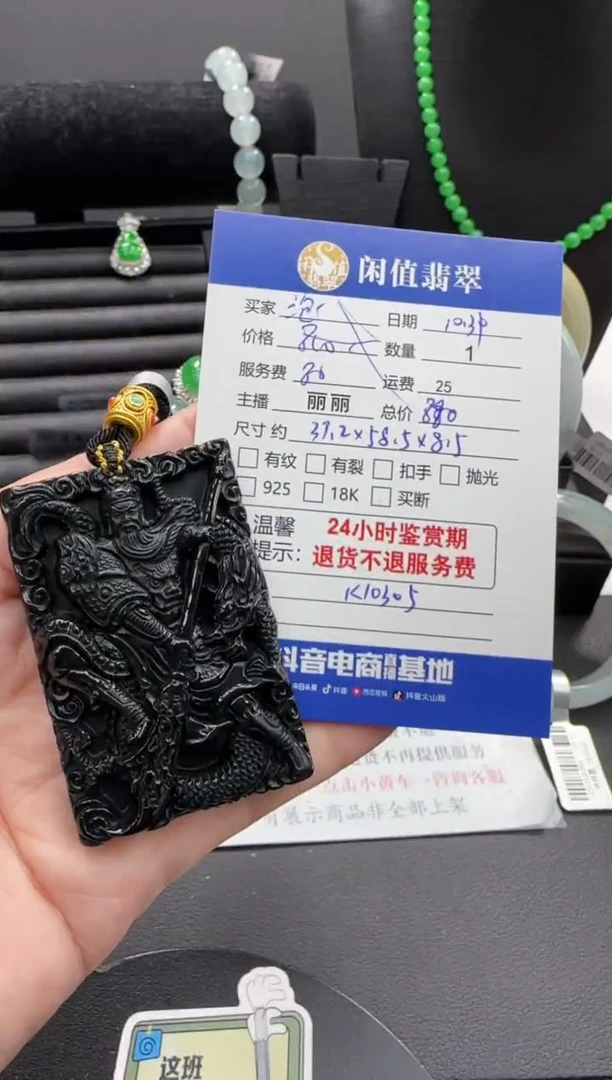 闲值翡翠
买家 日期
价格 800 数量 1
服务费 80 运费 25
主播 丽丽 总价 880
尺寸 约 37.2×58.5×8.5
有纹 有裂 扣手 抛光
925 18K 买断
温馨提示: 24小时鉴赏期
退货不退服务费
K10305
抖音电商直播基地
今日头条 抖音 西瓜视频 抖音火山版
货不再提供服务
点击小黄车
有展示商品非全部上架
这班